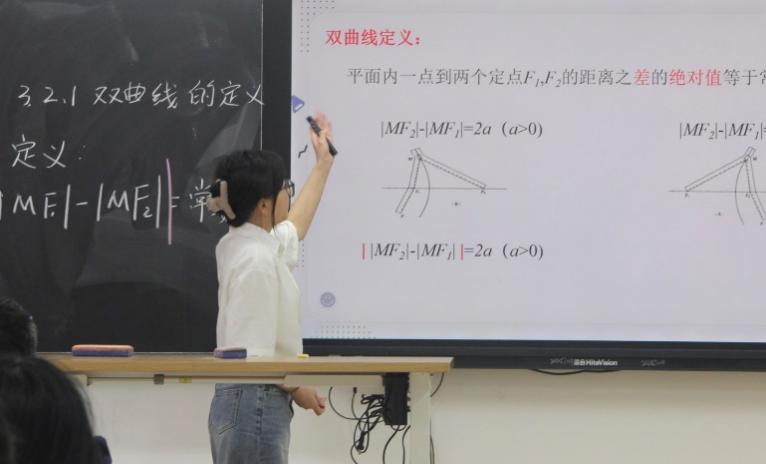 3.2.1 双曲线的定义
定义:
|MF₁|-|MF₂||=常
双曲线定义：
平面内一点到两个定点F₁,F₂的距离之差的绝对值等于常
|MF₂|-|MF₁|=2a（a>0）
|MF₂|-|MF₁|=
||MF₂|-|MF₁||=2a（a>0）
HiteVision